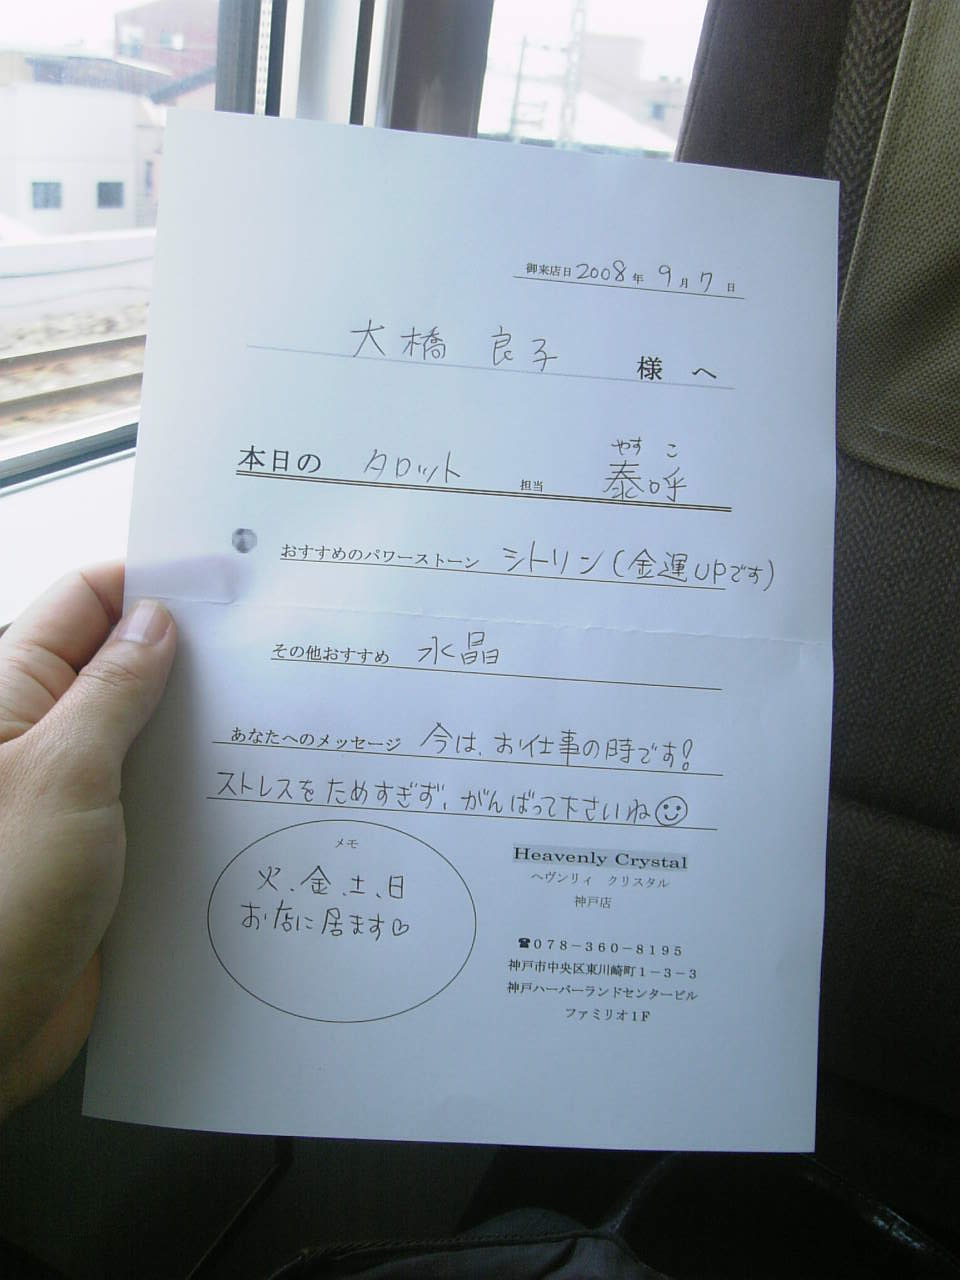 御来店日 2008年 9月 7日
大橋 良子 様 へ
やす こ
本日の タロット 担当 泰呼
おすすめのパワーストーン シトリン(金運UPです)
その他おすすめ 水晶
あなたへのメッセージ 今は、お仕事の時です!
ストレスをためすぎず、がんばって下さいね
メモ
火、金、土、日
お店に居ます♡
Heavenly Crystal
ヘヴンリィ クリスタル
神戸店
☎078-360-8195
神戸市中央区東川崎町1-3-3
神戸ハーバーランドセンタービル
ファミリオ1F